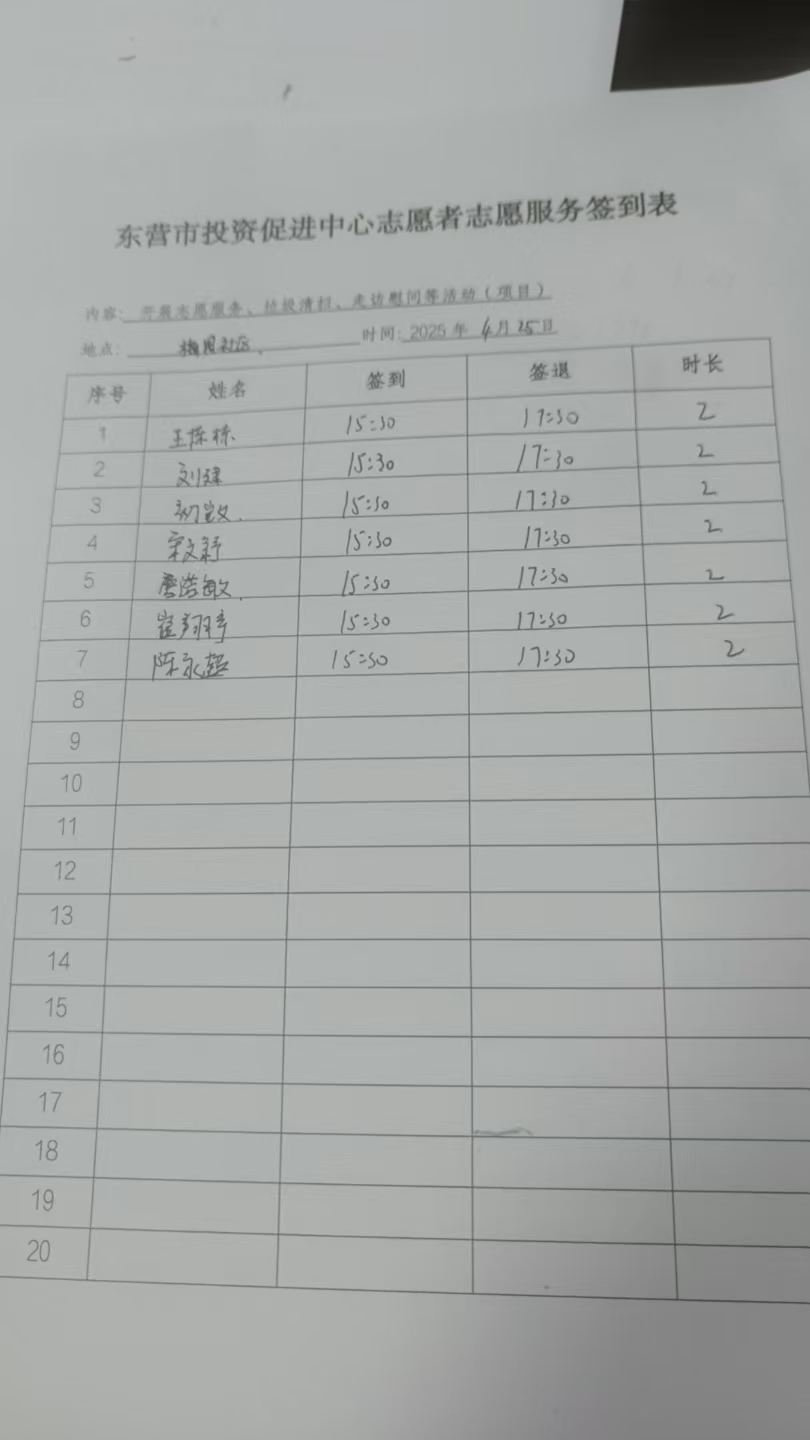 东营市投资促进中心志愿者志愿服务签到表
内容: 开展志愿服务、垃圾清扫、走访慰问等活动(项目)
地点: 梅园社区. 时间: 2025 年 4 月 25 日
序号 姓名 签到 签退 时长
1 王栋栋 15:30 17:30 2
2 刘建 15:30 17:30 2
3 初敏. 15:30 17:30 2
4 宋文静 15:30 17:30 2
5 唐浩敏. 15:30 17:30 2
6 崔翔宇 15:30 17:30 2
7 陈永超 15:30 17:30 2
8
9
10
11
12
13
14
15
16
17
18
19
20